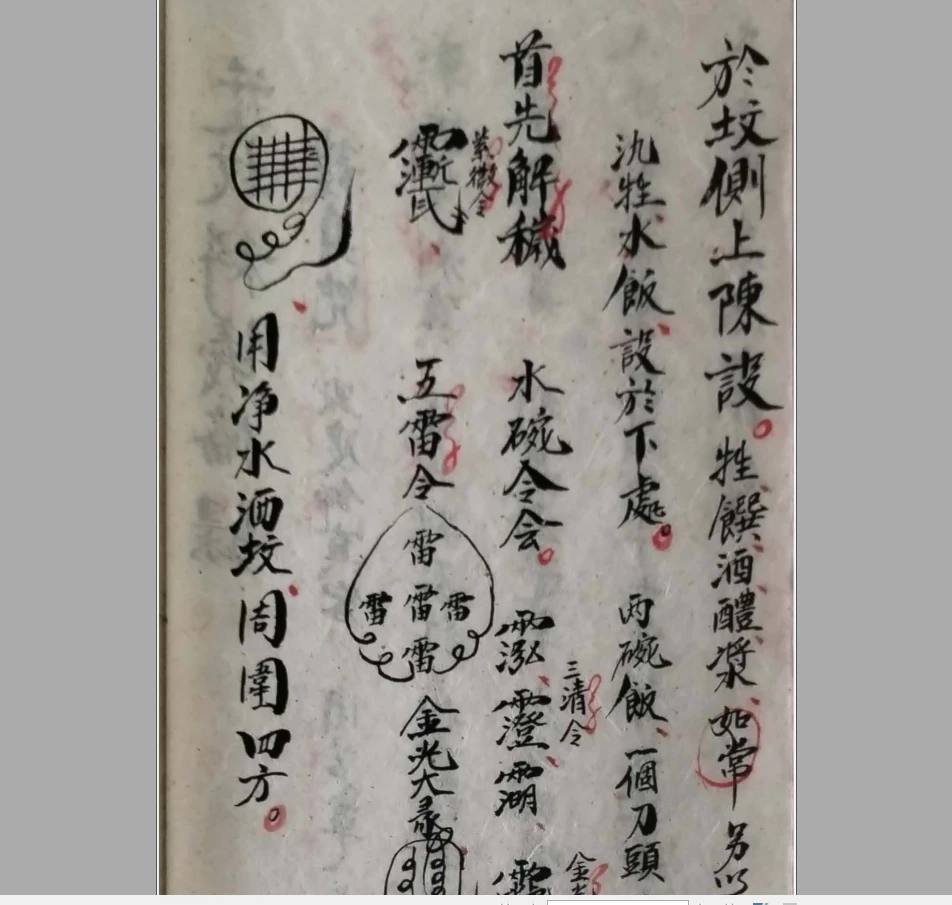 於坟側上陳設。牲饌、酒醴、漿、如常 另以
牲水飯、設於下處。 两碗飯、一個刀頭
首先解穢 水碗令会。
三清令
金
紫微令
五雷令 雷 雷 雷 雷 雷 金光大
用净水洒坟、周圍四方。